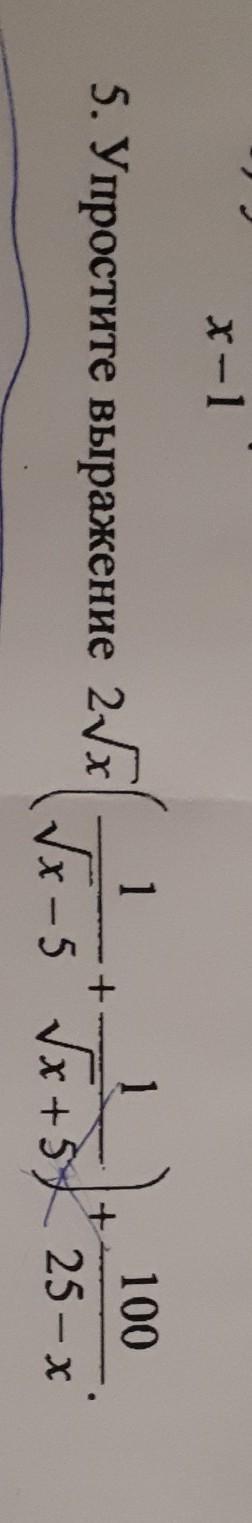 x − 1
5. Упростите выражение 2√x (1/(√x − 5) + 1/(√x + 5)) + 100/(25 − x).